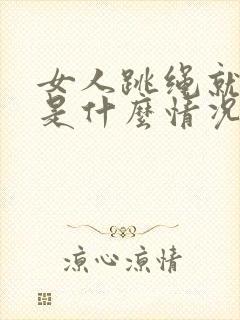 女人跳绳就
是什麼情况
凉心凉情